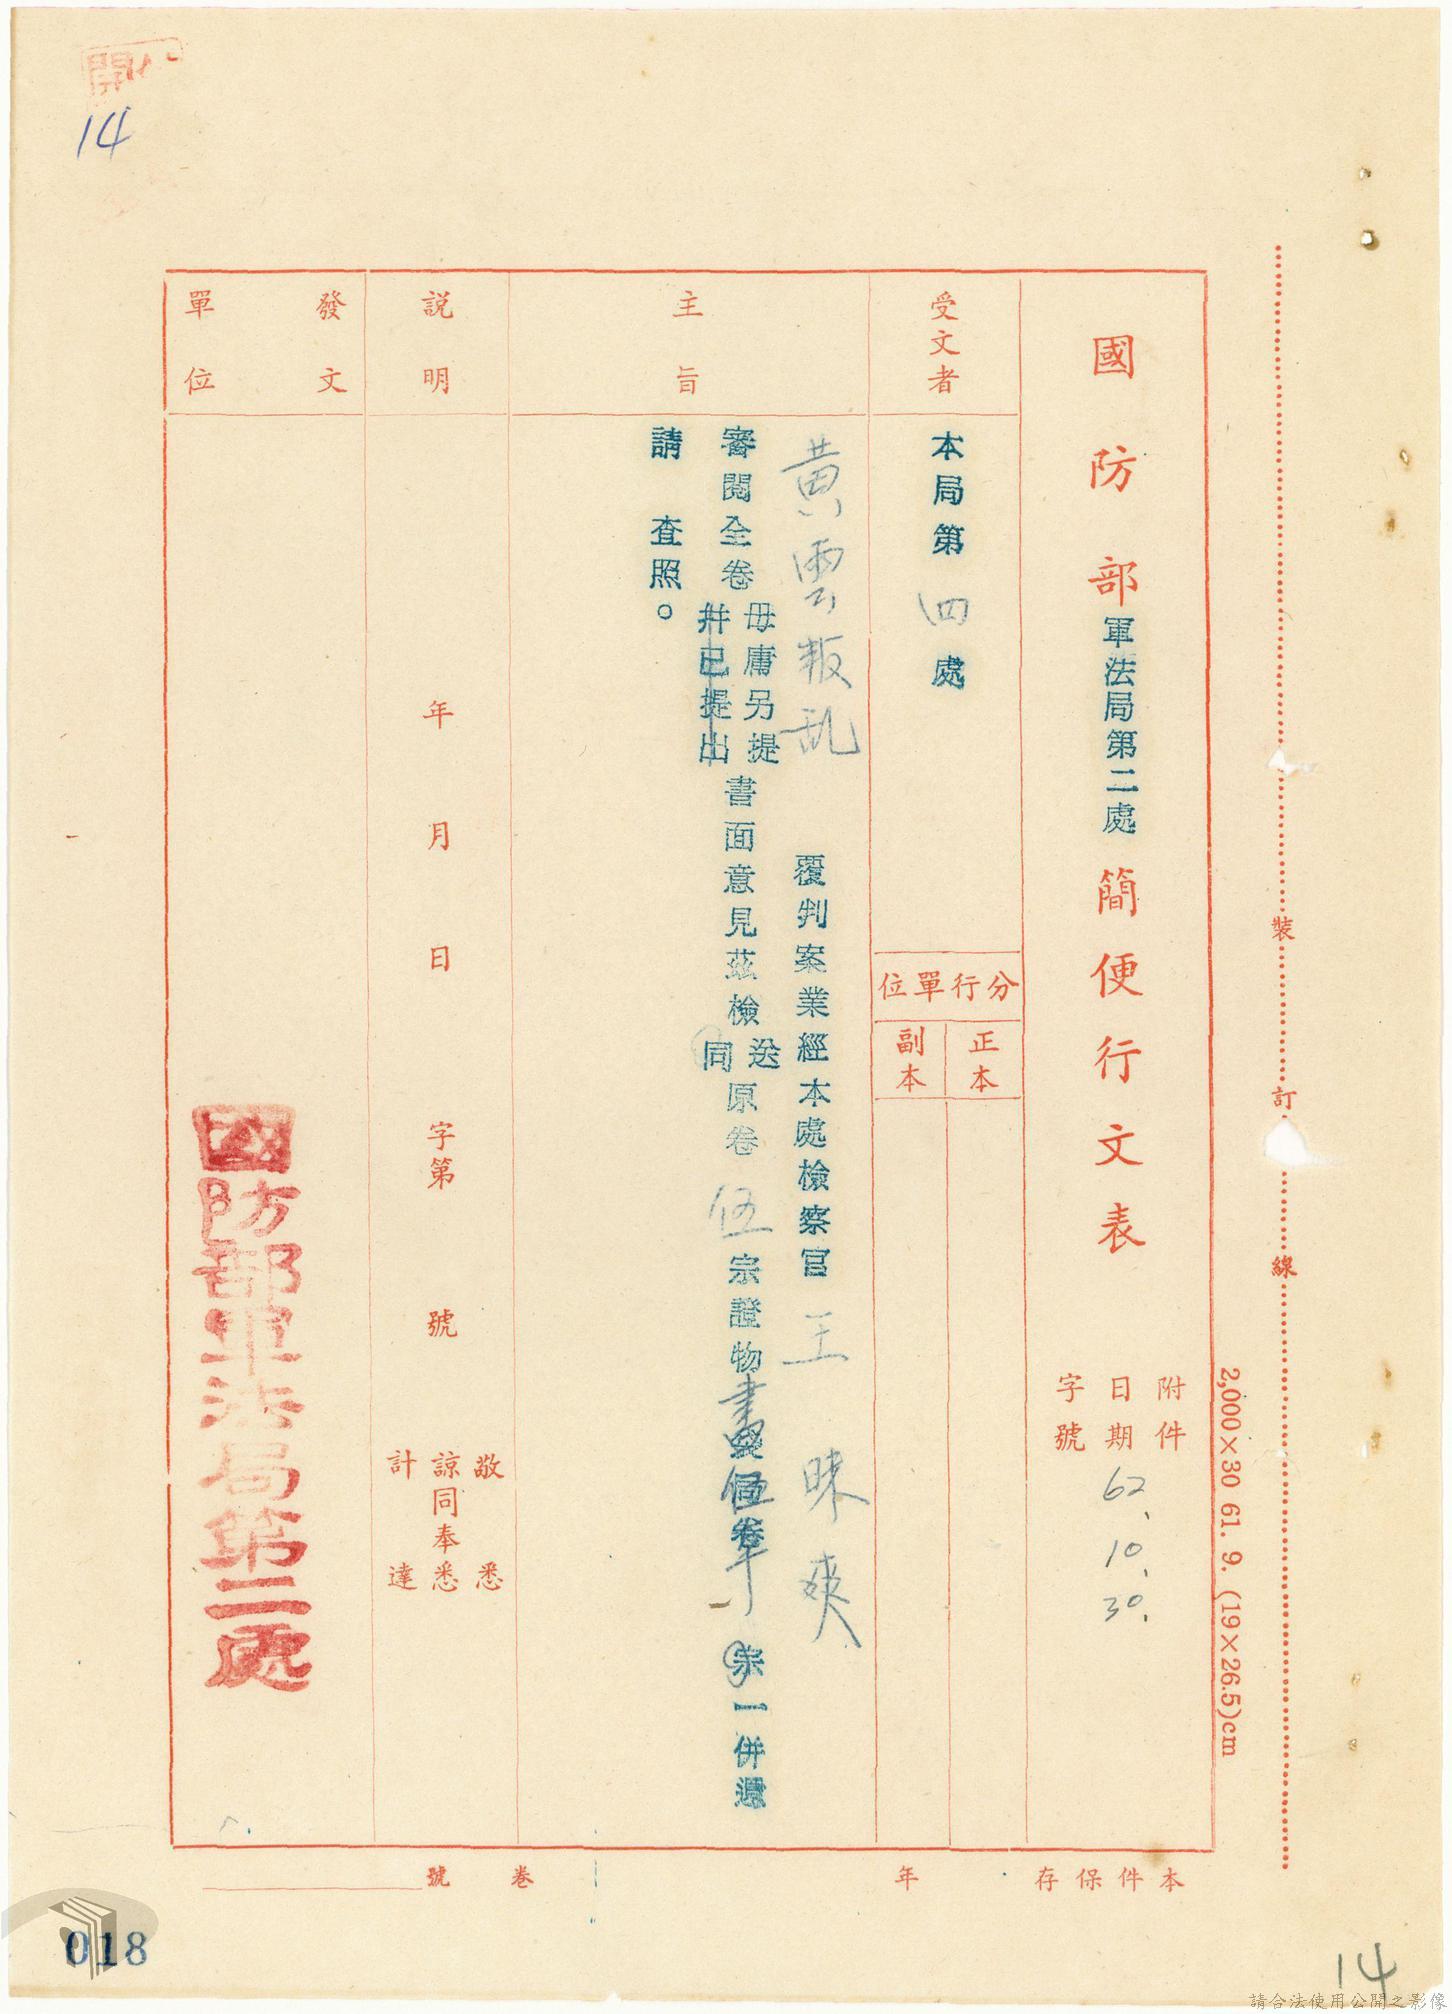 開
14
裝 訂 線
2,000×30 61. 9. (19×26.5)cm
國防部軍法局第二處簡便行文表
附件
日期 62. 10. 30.
字號
受文者
本局第四處
分行單位
正本
副本
主旨
黃雲叛乱 覆判案業經本處檢察官王
審閱全卷
毋庸另提
并已提出
書面意見茲檢
送
同
原卷伍宗證物
宗一併還
請 查照。
説明
年 月 日 字第 號
敬悉
諒同奉悉
計達
發文單位
國防部軍法局第二處
本件保存 年
卷 號
018
14
請合法使用公開之影像